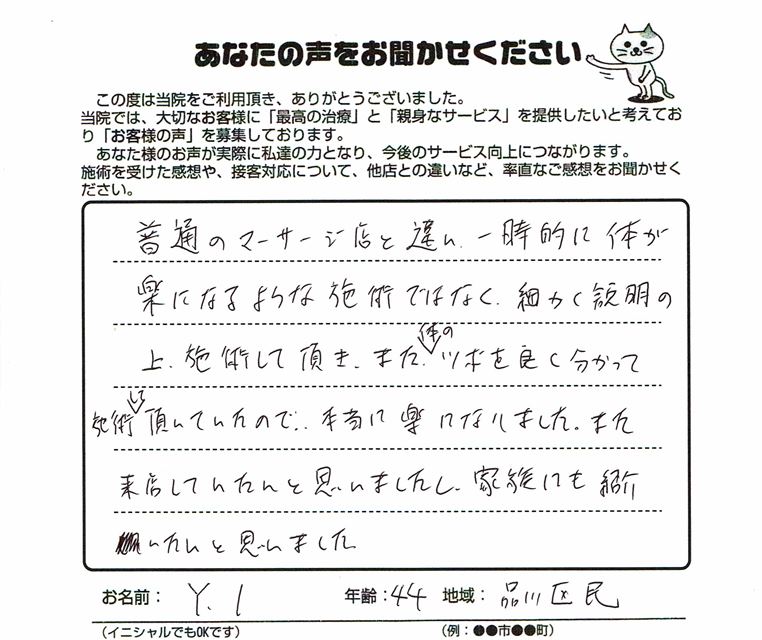 あなたの声をお聞かせください
この度は当院をご利用頂き、ありがとうございました。
当院では、大切なお客様に「最高の治療」と「親身なサービス」を提供したいと考えてお
り「お客様の声」を募集しております。
あなた様のお声が実際に私達の力となり、今後のサービス向上につながります。
施術を受けた感想や、接客対応について、他店との違いなど、率直なご感想をお聞かせく
ださい。
普通のマーサージ店と違い、一時的に体が
楽になるような施術ではなく、細かく説明の
上、施術して頂き、また、体のツボを良く分かって
施術して頂いていたので、本当に楽になりました。また
来店していたいと思いましたし、家族にも紹介
いたいと思いました
お名前： Y. I 年齢：44 地域： 品川区民
（イニシャルでもOKです） （例：●●市●●町）